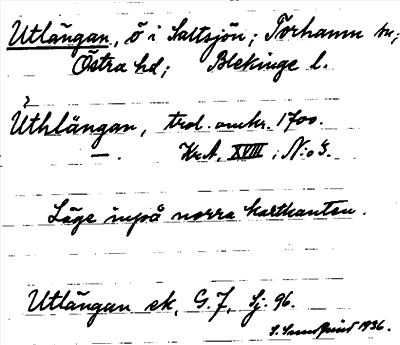 Utlängan, ö i Saltsjön; Torhamn sn;
Östra hd; Blekinge l.
Uthlängan, trol. omkr. 1700.
— . Kr.A. XVIII; N:o 3.
Läge inpå norra kartkanten.
Utlängan ek, G.7, Sj. 96.
1936.